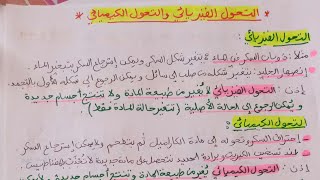 * التحول الفيزيائي والتحول الكيميائي *
التحول الفيزيائي :
مثلا : ذوبان السكر في الماء لا تتغير شكل السكر ويمكن استرجاع السكر بتبخر الماء
انصهار الجليد : يتغير شكله من صلب إلى سائل ويمكن الرجوع إلى شكله الأول بالتجمد
إذن : التحول الفيزيائي لا يغير من طبيعة المادة ولا تنتج أجسام جديدة
و يمكن الرجوع إلى الحالة الأصلية ( تتغير حالة المادة فقط )
التحول الكيميائي :
احتراق السكر وتحوله إلى مادة الكراميل ثم يتفحم ولا يمكن استرجاع السكر
عند تسخين الكبريت وبرادة الحديد نتحصل على مادة جديدة لا تجذب المغناطيس
إذن : التحول الكيميائي يغير من طبيعة المادة وتنتج أجسام جديدة